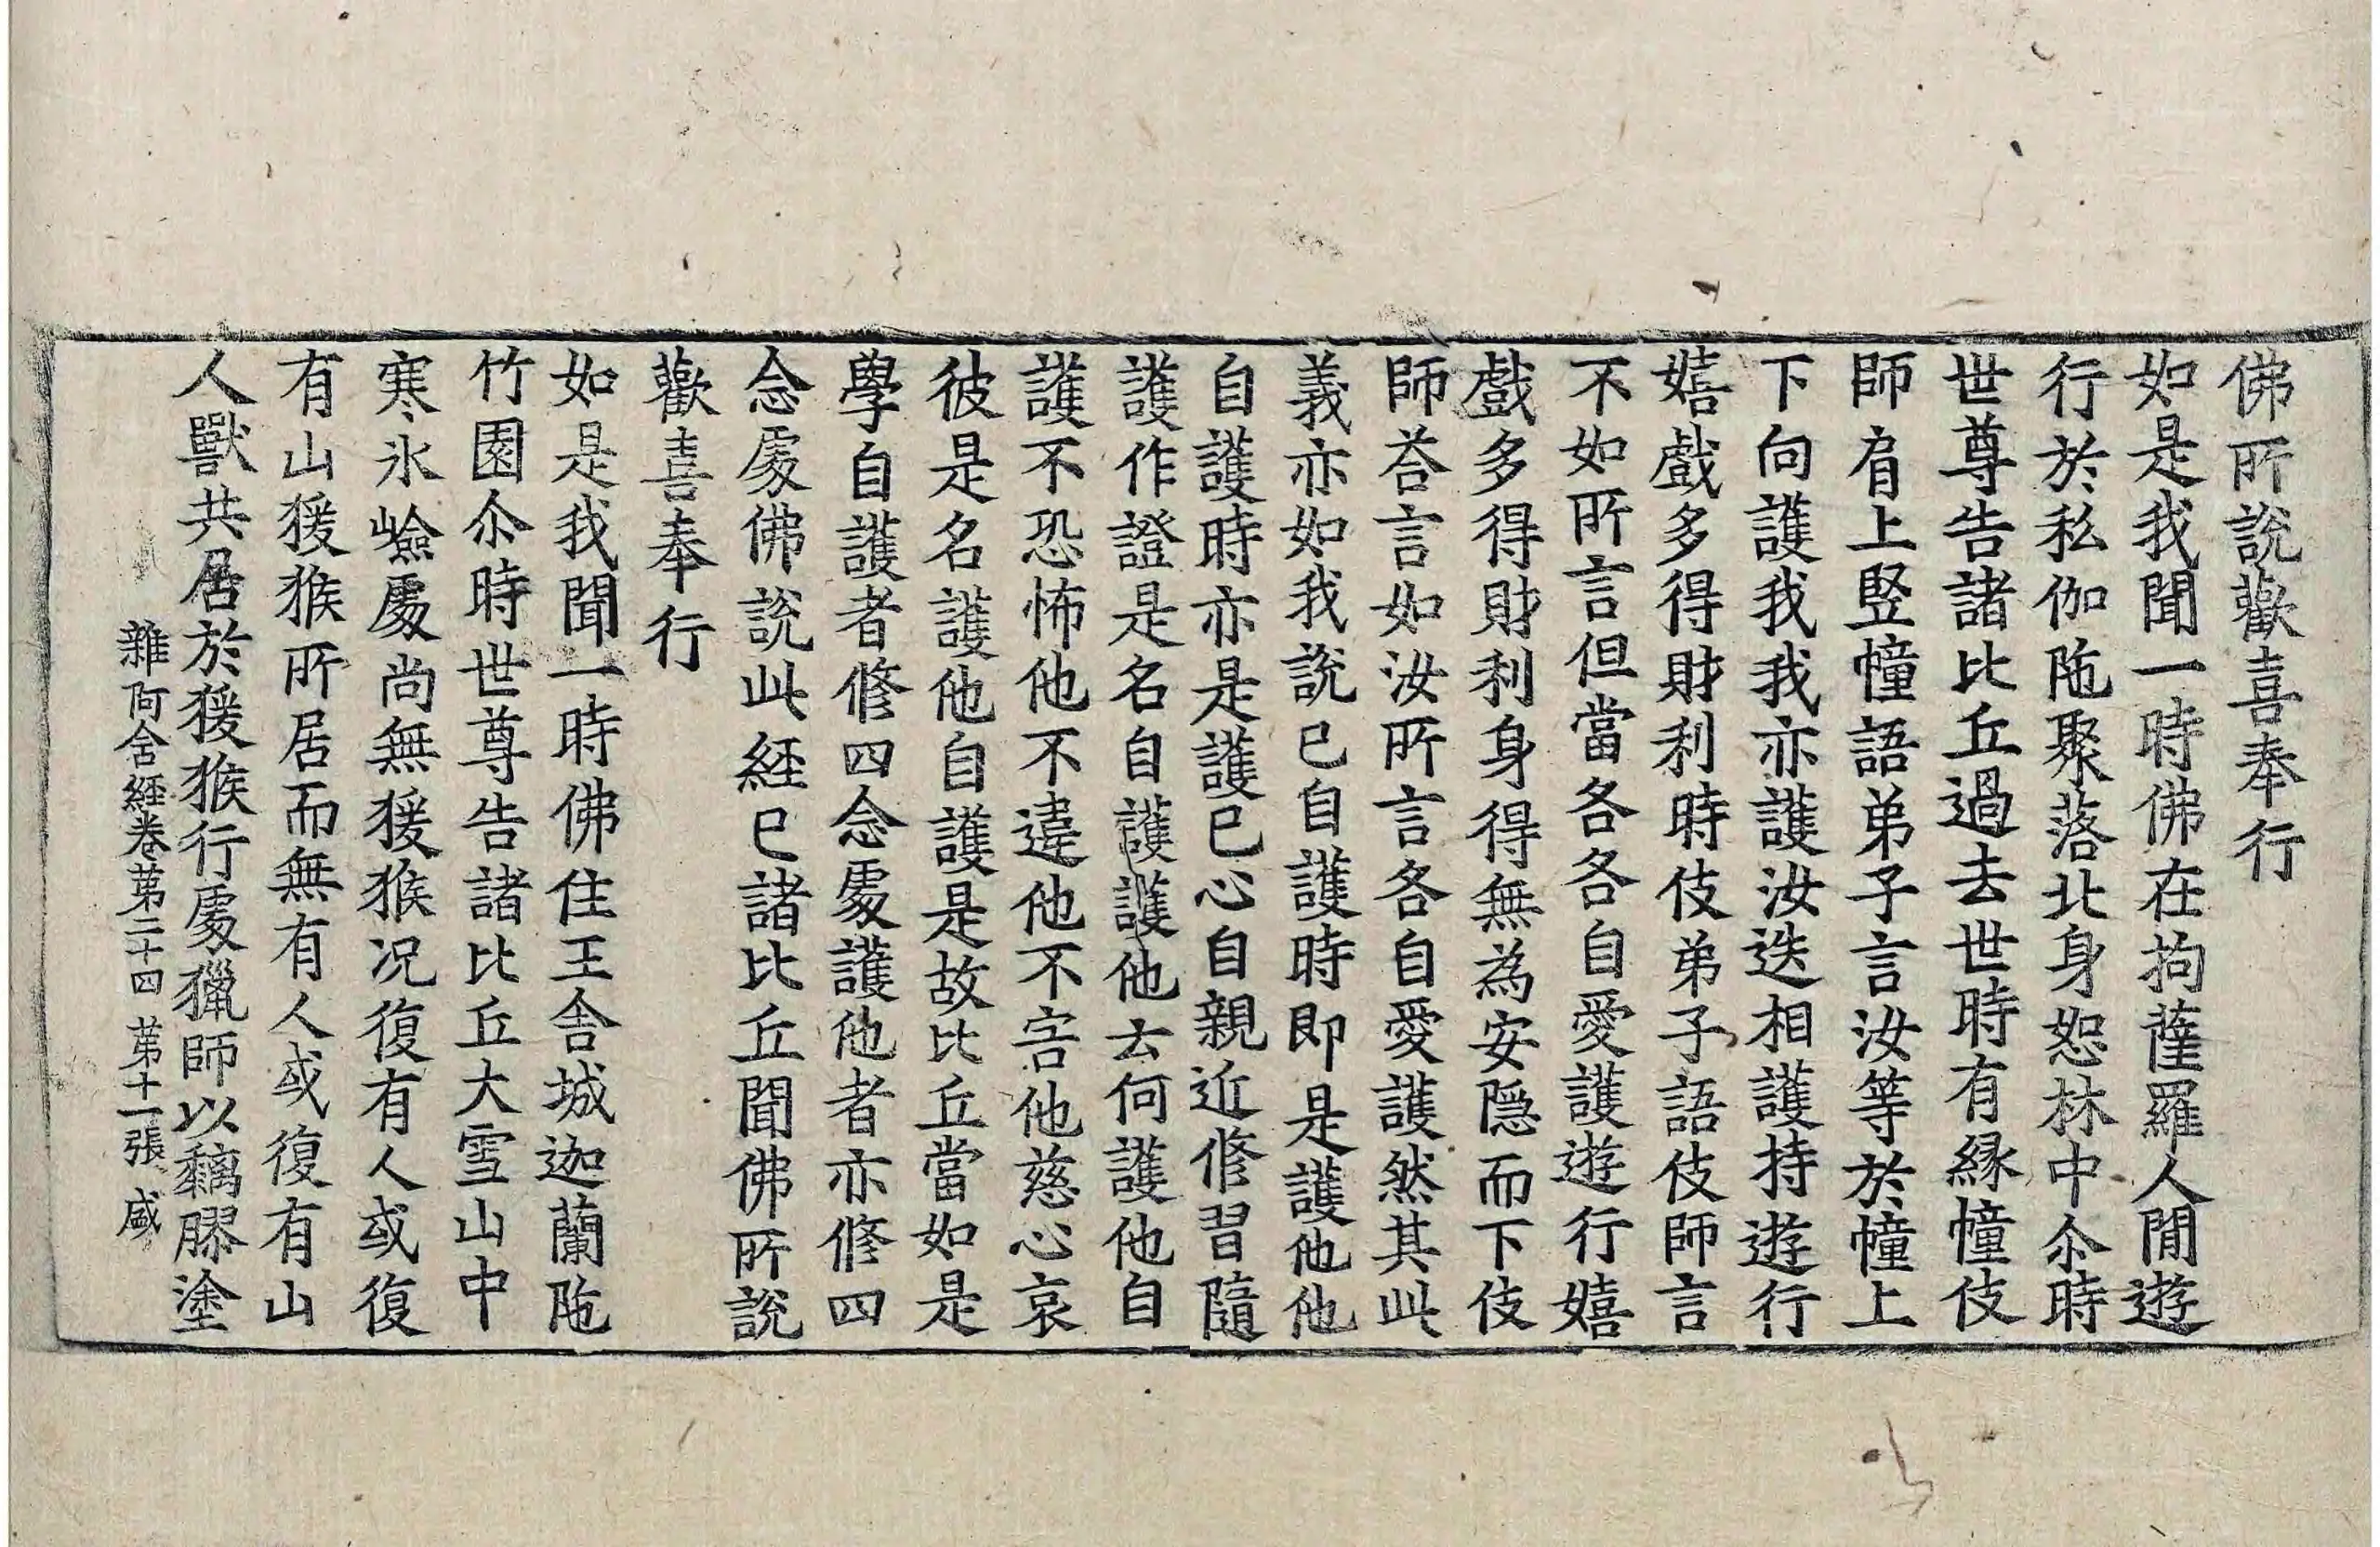 佛所說歡喜奉行
如是我聞一時佛在拘薩羅人閒遊
行於私伽陁聚落北身恕林中尒時
世尊告諸比丘過去世時有緣幢伎
師肩上竪幢語弟子言汝等於幢上
下向護我我亦護汝迭相護持遊行
嬉戲多得財利時伎弟子語伎師言
不如所言但當各各自愛護遊行嬉
戲多得財利身得無為安隱而下伎
師荅言如汝所言各自愛護然其此
義亦如我說已自護時即是護他他
自護時亦是護已心自親近修習隨
護作證是名自護護他云何護他自
護不恐怖他不違他不害他慈心哀
彼是名護他自護是故比丘當如是
學自護者修四念處護他者亦修四
念處佛說此經已諸比丘聞佛所說
歡喜奉行
如是我聞一時佛住王舍城迦蘭陁
竹園尒時世尊告諸比丘大雪山中
寒氷嶮處尚無猨猴况復有人或復
有山猨猴所居而無有人或復有山
人獸共居於猨猴行處獵師以黐膠塗
雜阿含經卷第二十四 第十一張 盛